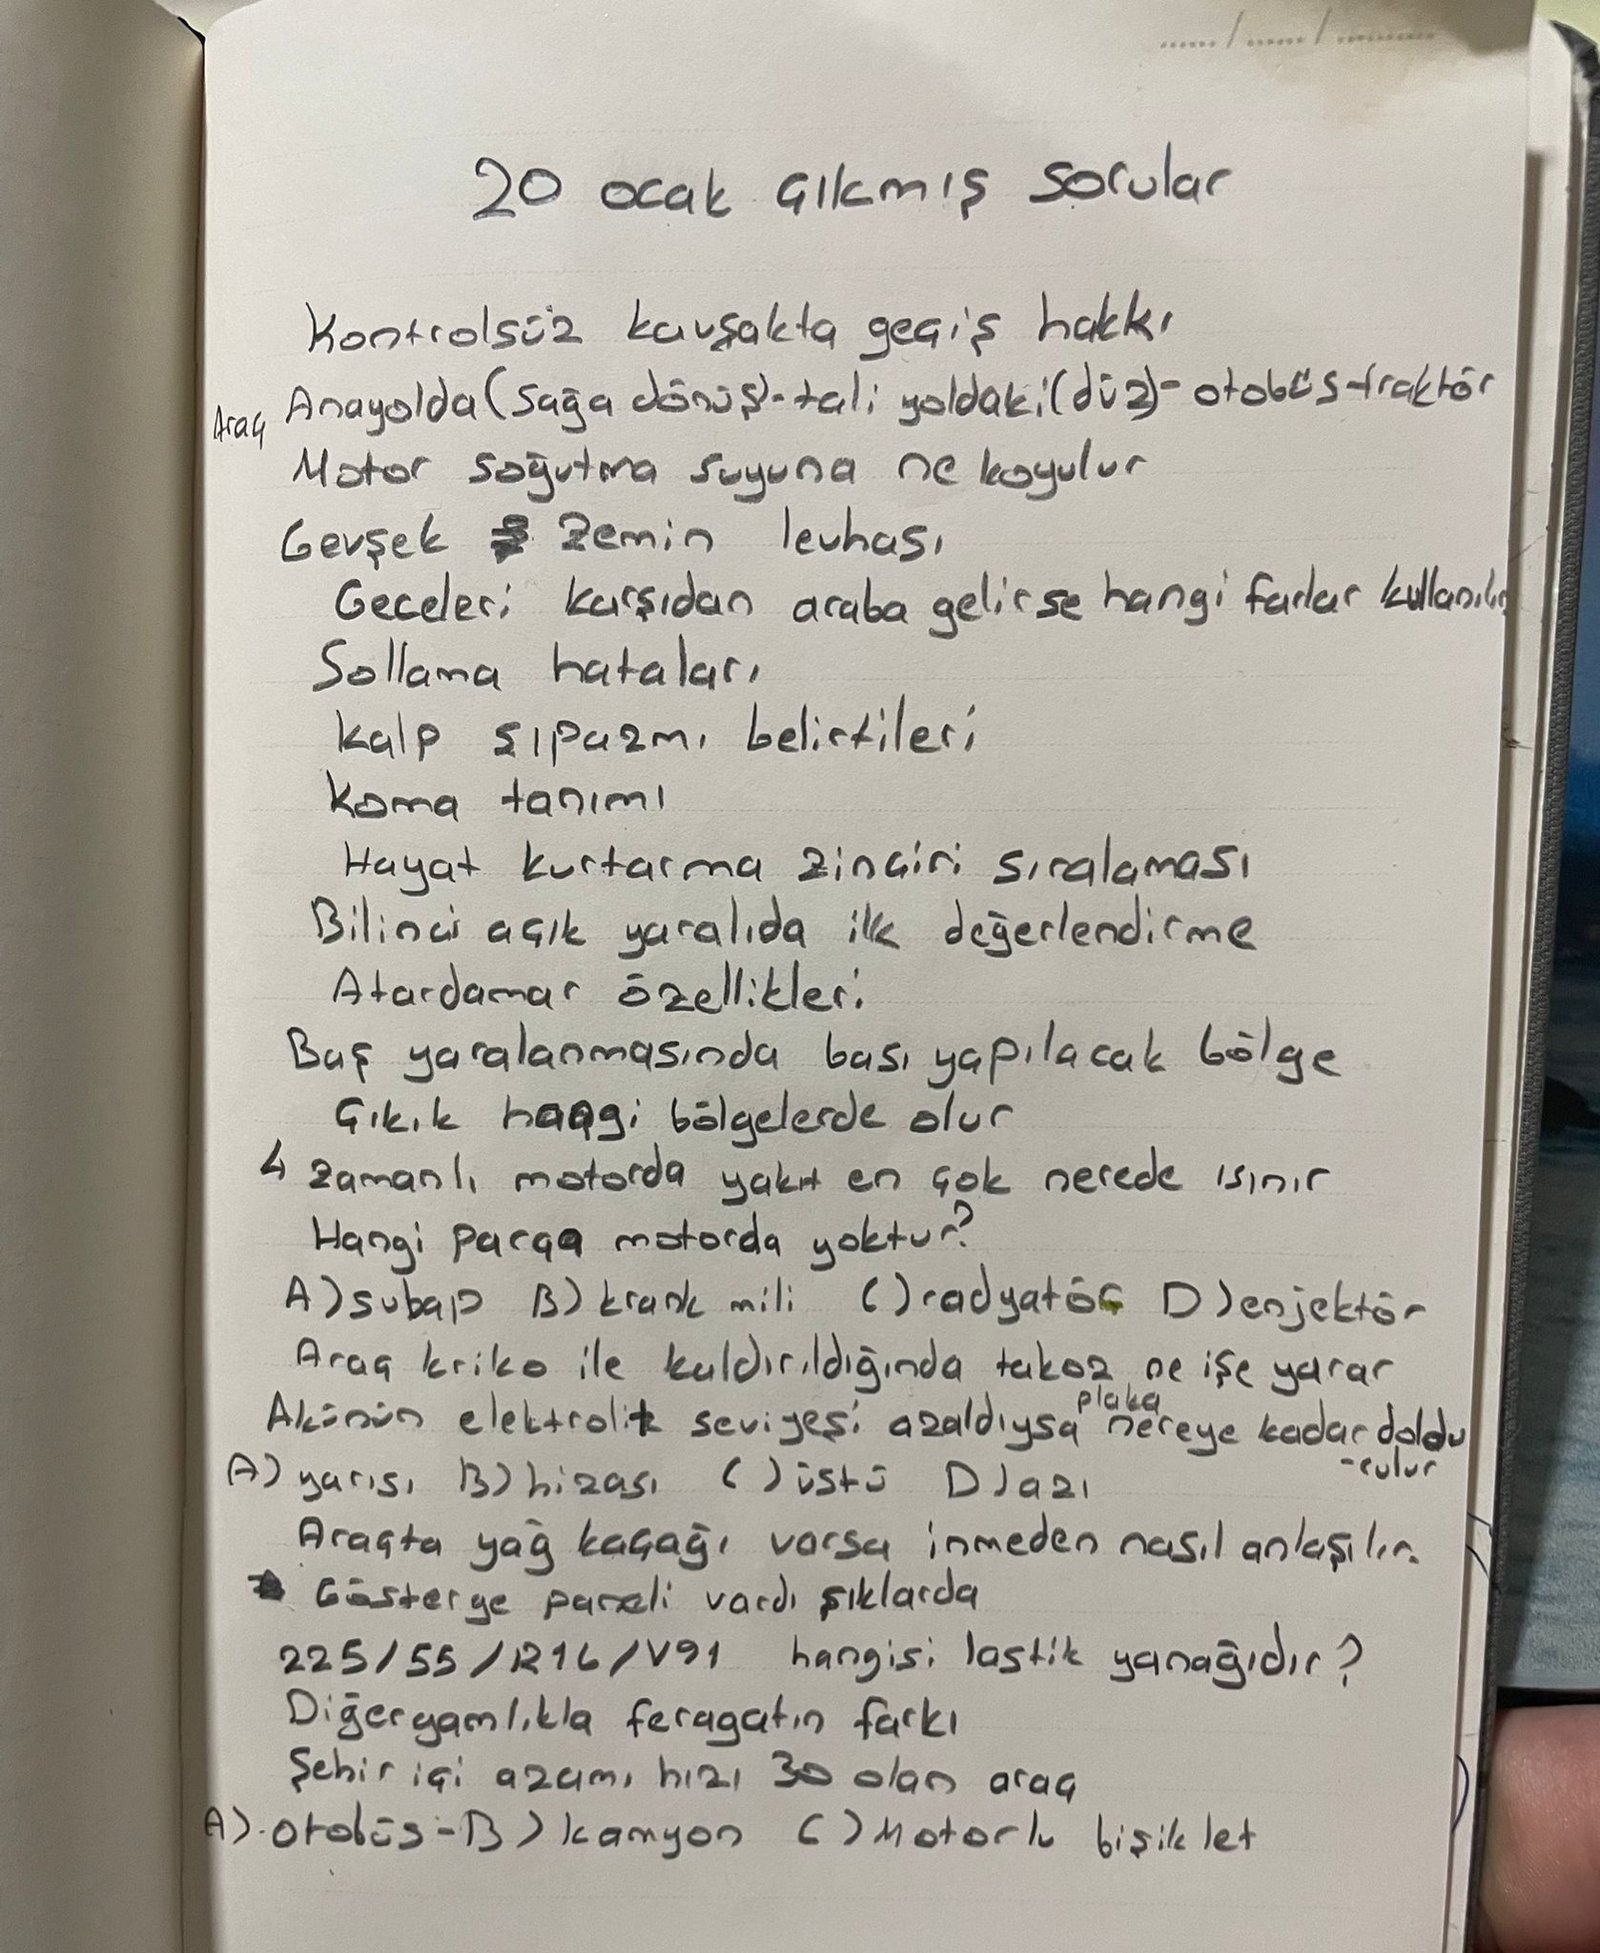 ...... / ...... / ............
20 ocak çıkmış sorular
Kontrolsüz kavşakta geçiş hakkı
Araç Anayolda (sağa dönüş)-tali yoldaki(düz)-otobüs-traktör
Motor soğutma suyuna ne koyulur
Gevşek zemin levhası
Geceleri karşıdan araba gelirse hangi farlar kullanılır
Sollama hataları
Kalp şıpazmı belirtileri
Koma tanımı
Hayat kurtarma zinciri sıralaması
Bilinci açık yaralıda ilk değerlendirme
Atardamar özellikleri
Baş yaralanmasında bası yapılacak bölge
Çıkık hangi bölgelerde olur
4 zamanlı motorda yakıt en çok nerede ısınır
Hangi parça motorda yoktur?
A) subap B) krank mili C) radyatör D) enjektör
Araç kriko ile kaldırıldığında takoz ne işe yarar
Akünün elektrolit seviyesi azaldıysa plaka nereye kadar doldu
-rulur
A) yarısı B) hizası C) üstü D) azı
Araçta yağ kaçağı varsa inmeden nasıl anlaşılır.
Gösterge paneli vardı şıklarda
225/55/R16/V91 hangisi lastik yanağıdır?
Diğergamlıkla feragatın farkı
Şehir içi azami hızı 30 olan araç
A) otobüs - B) kamyon C) Motorlu bisiklet